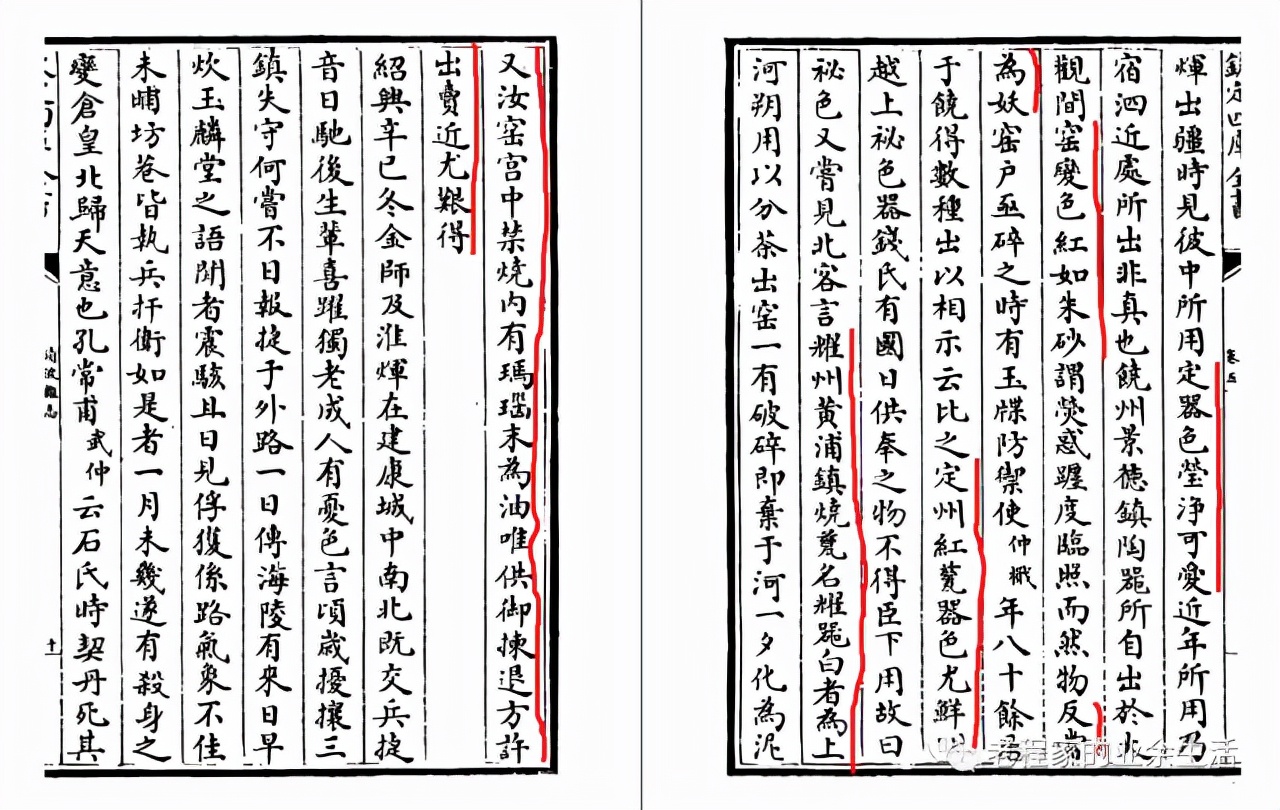 欽定四庫全書
卷五
煇出疆時見彼中所用定器色瑩淨可愛近年所用乃
宿泗近處所出非真也饒州景德鎮陶器所自出於大
觀間窑變色紅如朱砂謂熒惑躔度臨照而然物反常
為妖窑户亟碎之時有玉牒防禦使仲檝年八十餘居
于饒得數種出以相示云比之定州紅甆器色尤鮮明
越上祕色器錢氏有國日供奉之物不得臣下用故曰
祕色又嘗見北客言耀州黄浦鎮燒甆名耀器白者為上
河朔用以分茶出窑一有破碎即棄于河一夕化為泥
又汝窑宫中禁燒内有瑪瑙末為油唯供御揀退方許
出賣近尤艱得
紹興辛巳冬金師及淮煇在建康城中南北既交兵捷
音日馳後生輩喜躍獨老成人有憂色言頃歲擾攘三
鎮失守何嘗不日報捷于外路一日傳海陵有來日早
炊玉麟堂之語聞者震駭且日見俘獲係路氣象不佳
未晡坊巷皆執兵扞衛如是者一月未幾遂有殺身之
變倉皇北歸天意也孔常甫武仲云石氏時契丹死其
清波雜志
十一
老程家的业余生活